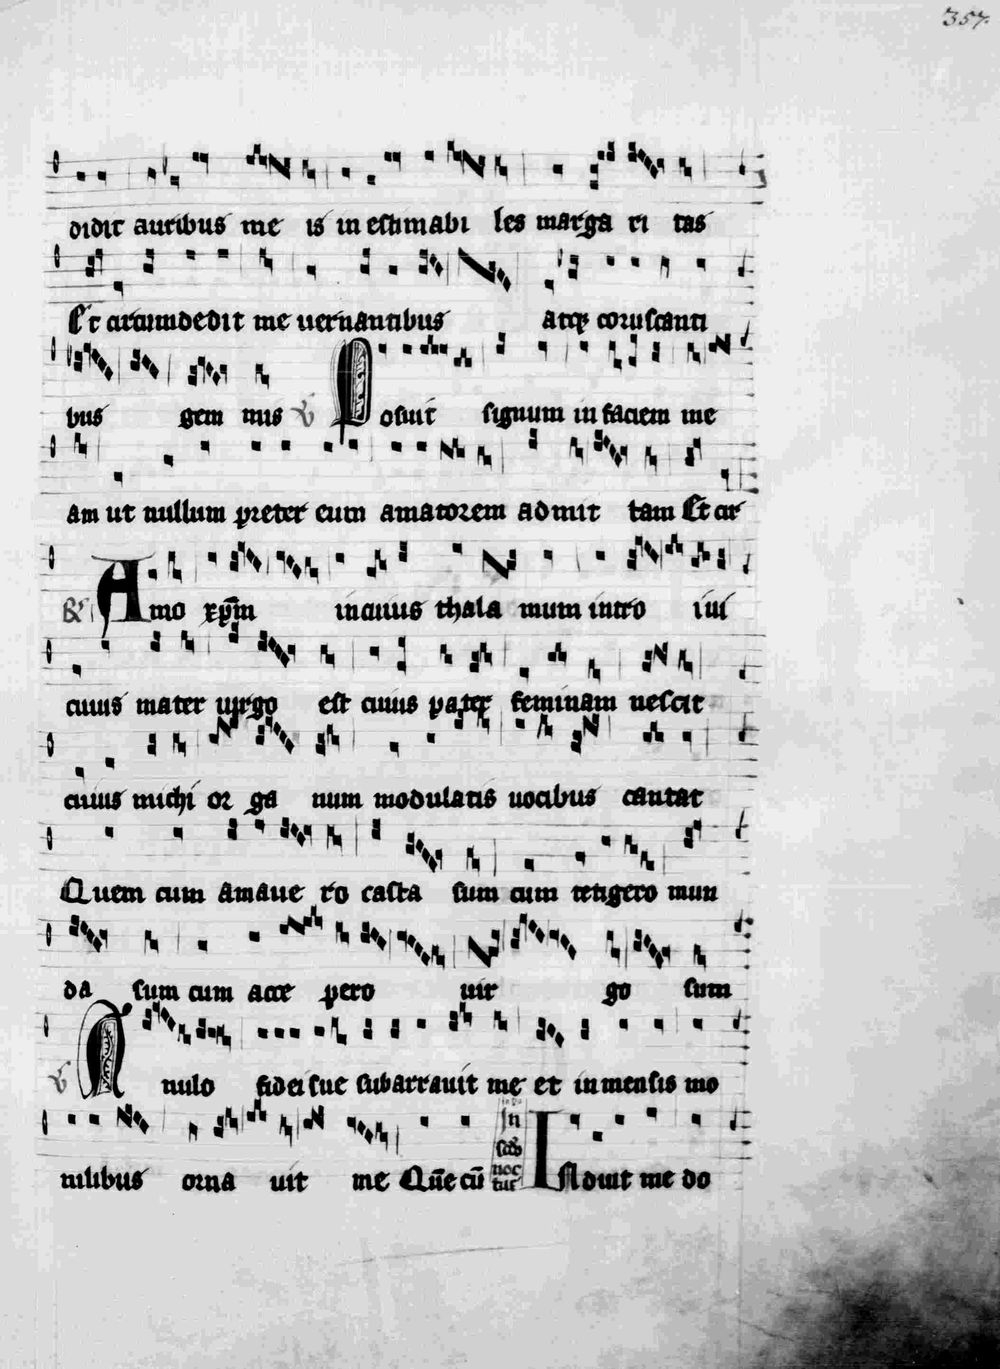 357.
didit auribus me is in estimabi les marga ri tas
Et circumdedit me uernantibus atqꝫ coruscanti
bus gem mis ℣ Posuit signum in faciem me
am ut nullum preter eum amatorem admit tam Et cir
℟ Amo xp̄m incuius thala mum intro iui
cuius mater uirgo est cuius pater feminam nescit
cuius michi or ga num modulatis uocibus cantat
Quem cum amaue ro casta sum cum tetigero mun
da sum cum acce pero uir go sum
℣ Anulo fidei sue subarrauit me et inmensis mo
nilibus orna uit me Quē cū In scd̄o noc tur Induit me do